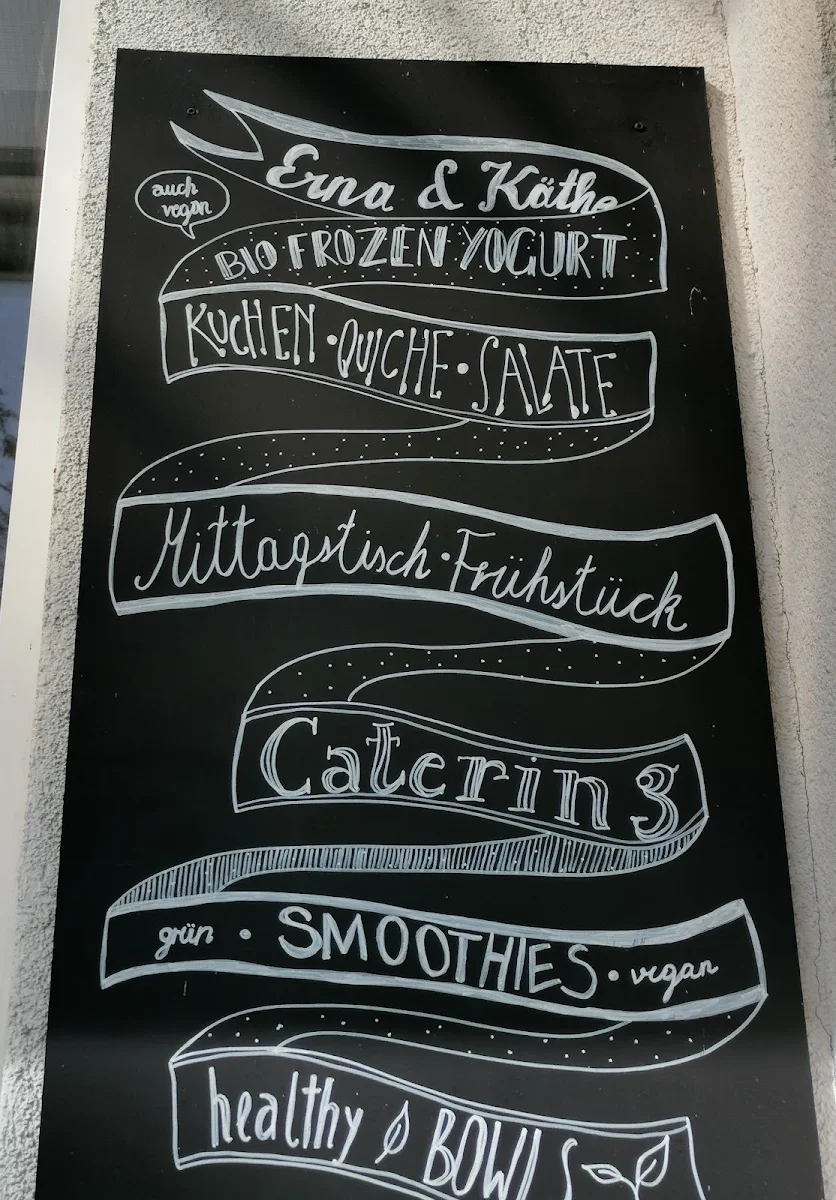 Erna & Käthe
auch
vegan
BIO FROZEN YOGURT
KUCHEN • QUICHE • SALATE
Mittagstisch • Frühstück
Catering
grün • SMOOTHIES • vegan
healthy BOWLS